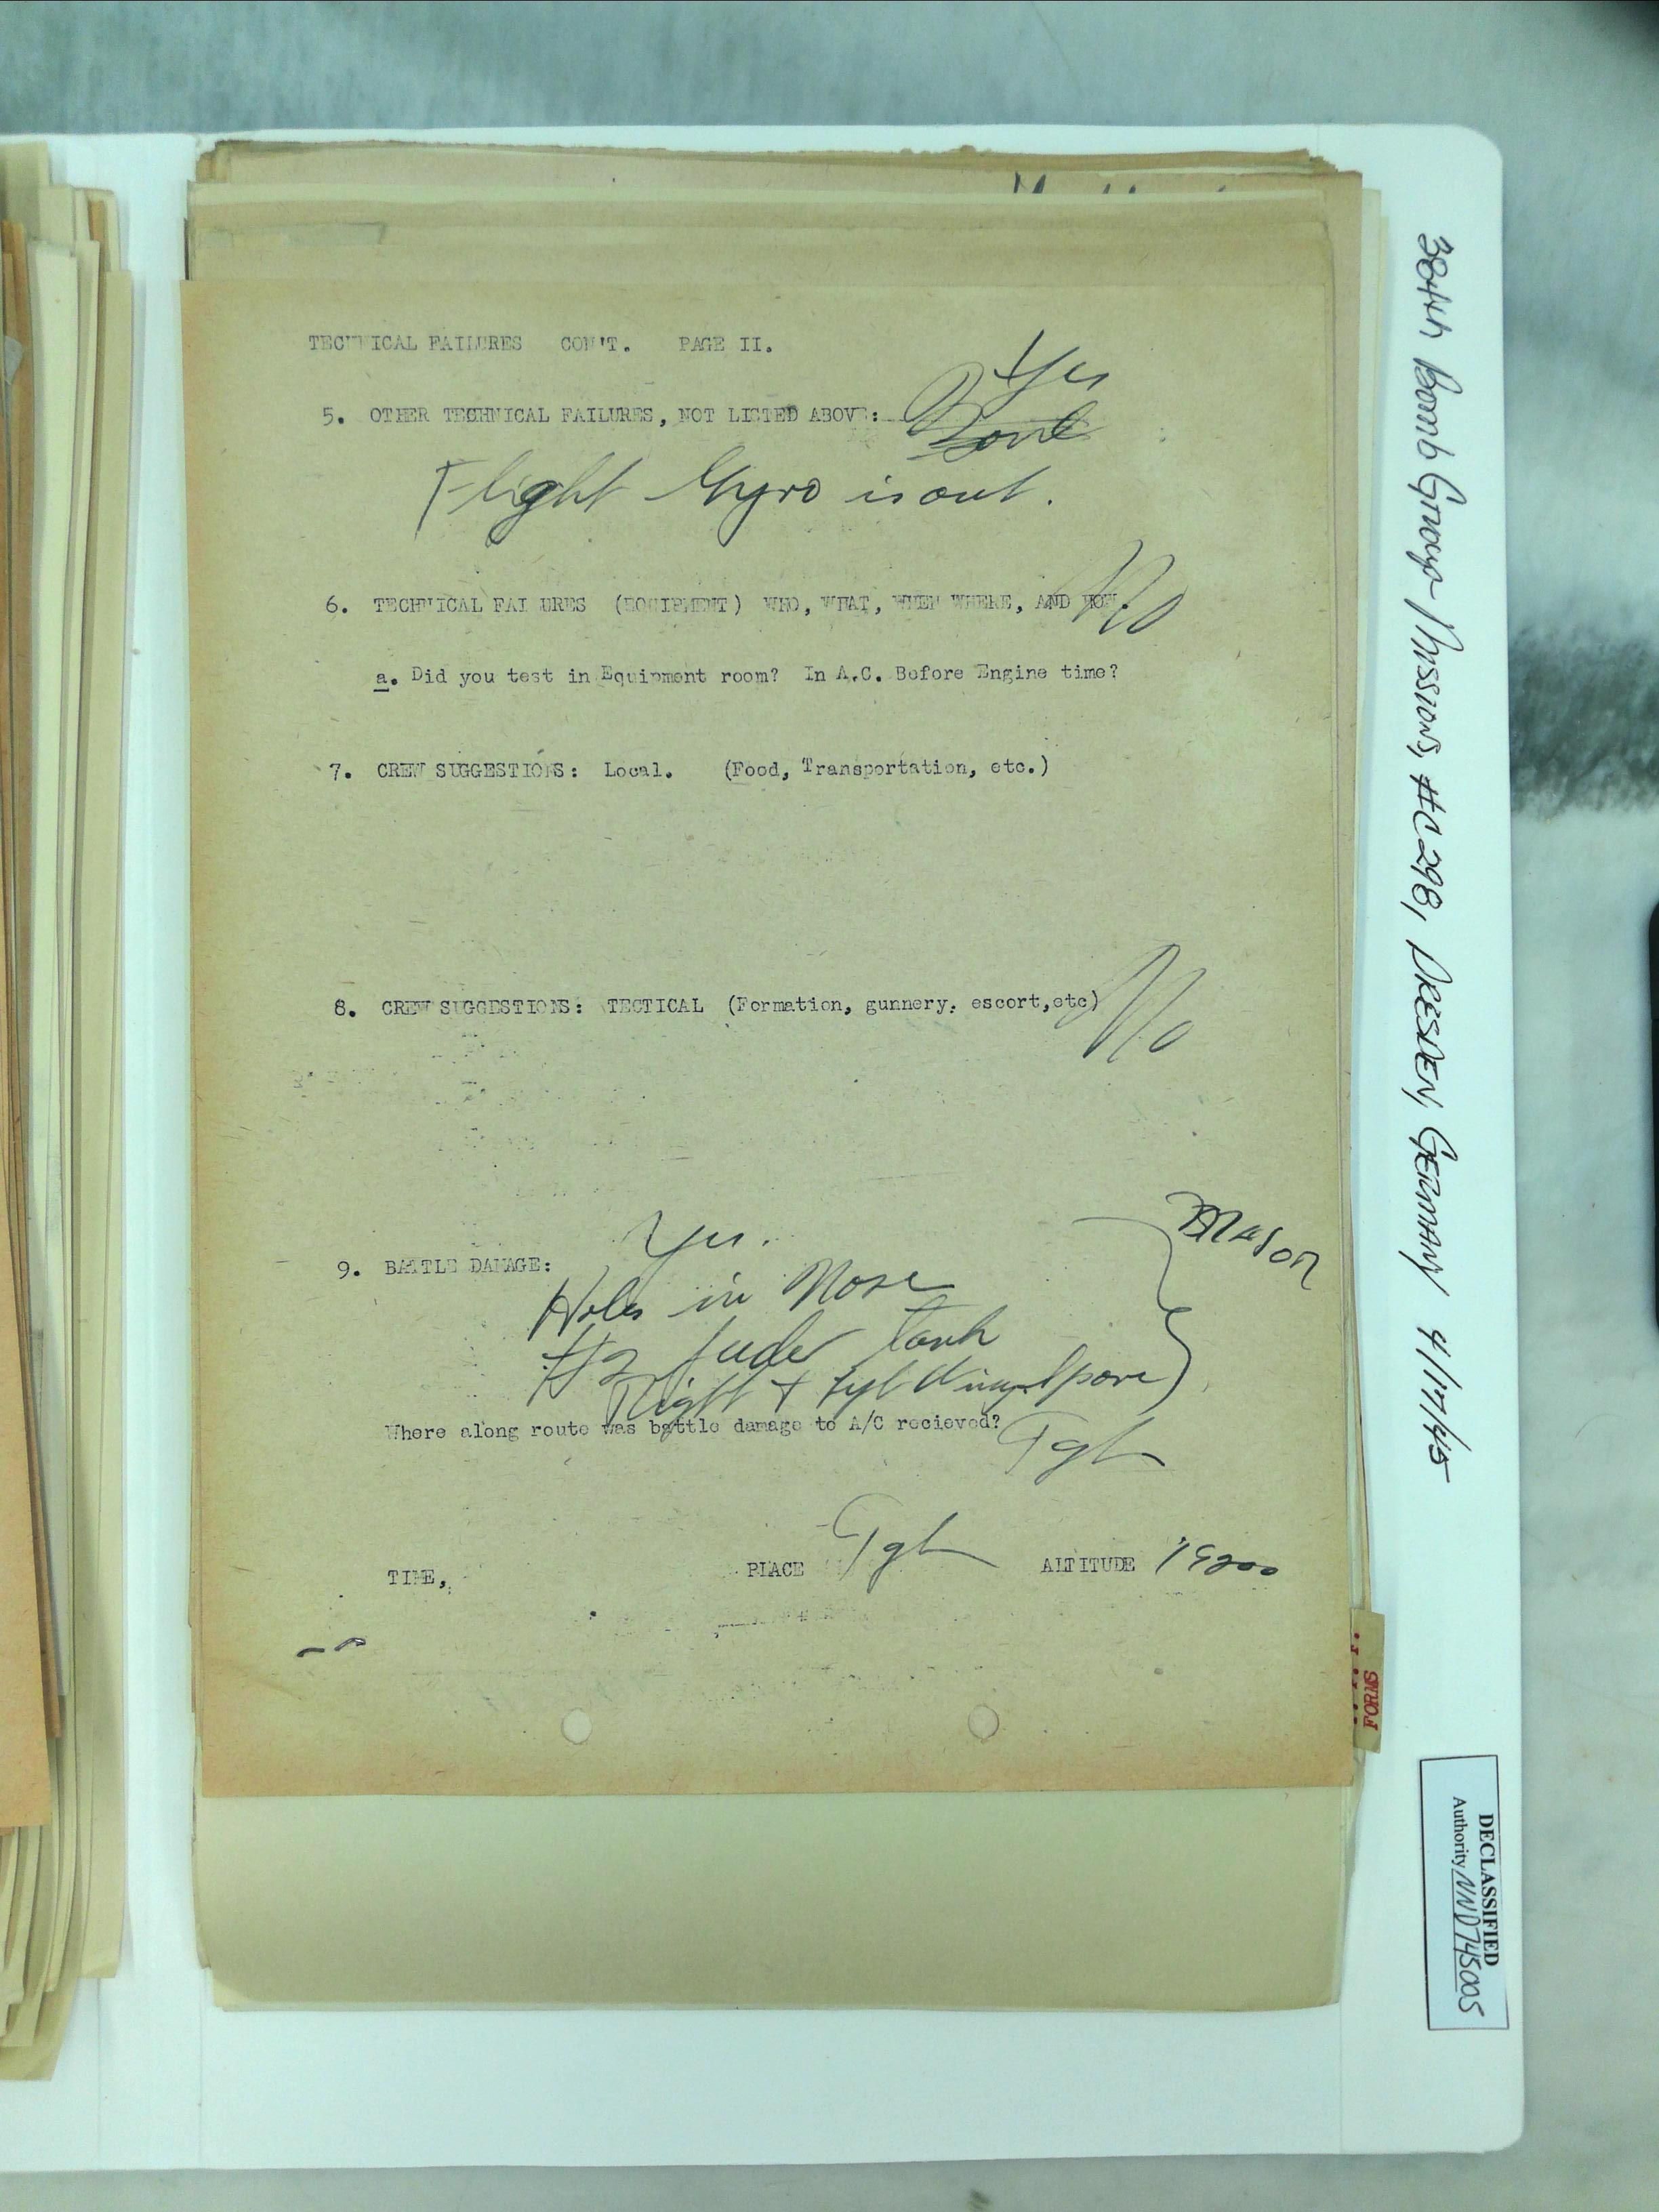 TECHNICAL FAILURES CON'T. PAGE II.
Yes
5. OTHER TECHNICAL FAILURES, NOT LISTED ABOVE:
Flight Gyro is out.
6. TECHNICAL FAI URES (EQUIPMENT) WHO, WHAT, WHEN WHERE, AND HOW. No
a. Did you test in Equipment room? In A.C. Before Engine time?
7. CREW SUGGESTIONS: Local. (Food, Transportation, etc.)
8. CREW SUGGESTIONS: TECTICAL (Formation, gunnery, escort,etc) No
Mason
9. BATTLE DAMAGE: Yes.
Holes in Nose
#2 feeder tank
Right + Left Wing Spare
Where along route was battle damage to A/C recieved? Tgt
TIME, PLACE Tgt ALTITUDE 19200
FORMS
384th Bomb Group Missions, #C298, DRESDEN, GERMANY 4/17/45
DECLASSIFIED
Authority NND745005